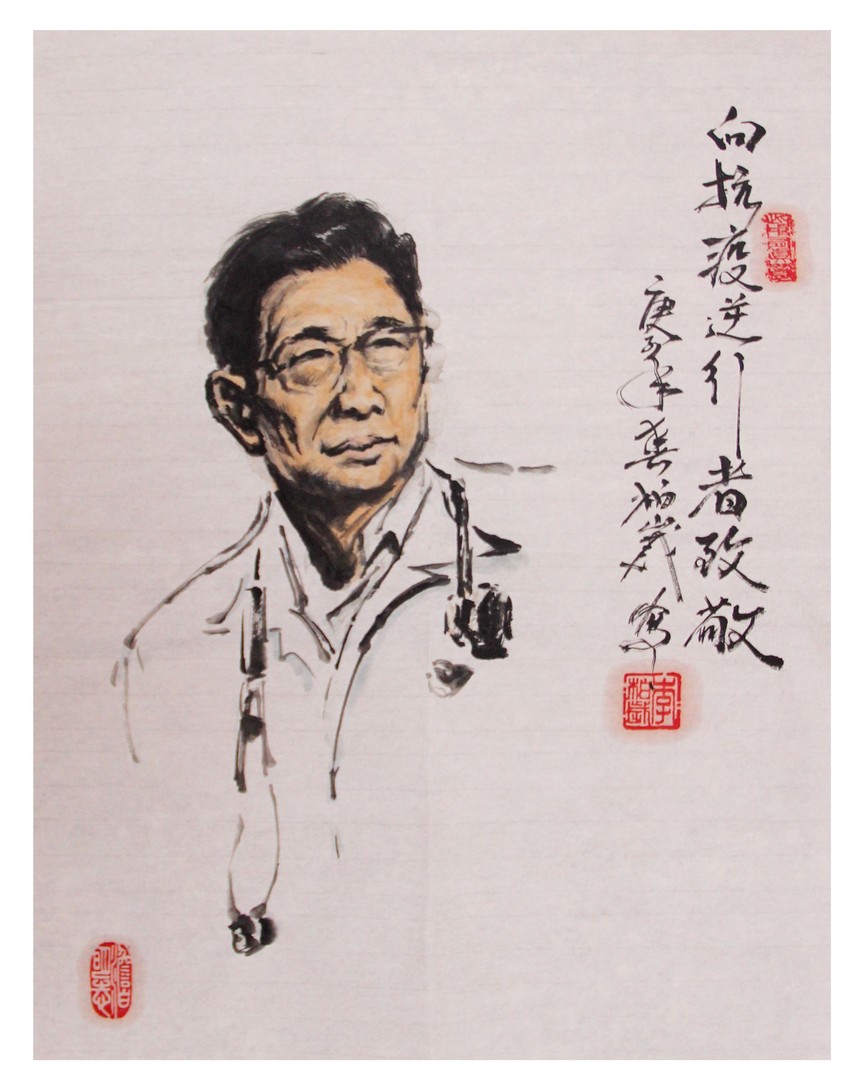 向抗疫逆行者致敬
庚子年春柏